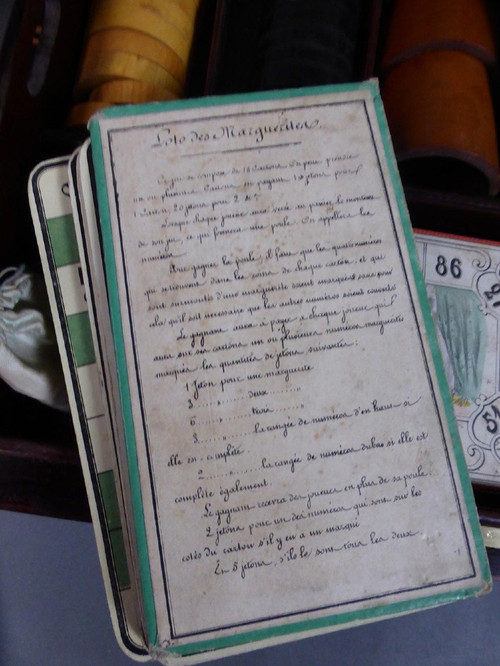 Loto des Marguerites.
Ce jeu se compose de 18 Cartons. On peut prendre
un ou plusieurs Cartons en payant 10 jetons pour
1 carton 20 jetons pour 2 &ª
Lorsque chaque joueur aura versé au panier le montant
de son jeu, ce qui formera une poule. On appellera les
numéros.
Pour gagner la poule, il faut que les quatre numéros
qui se trouvent dans les coins de chaque carton et qui
sont surmontés d'une marguerite soient marqués sans pour
cela qu'il soit nécessaire que les autres numéros soient couverts
Le gagnant aura à payer à chaque joueur qui
aura sur ses cartons un ou plusieurs numéros marguerite
marqués les quantités de jetons suivantes :
1 jeton pour une marguerite
3 ......... deux .........
6 ......... trois .........
3 ......... la rangée de numéros d'en haut si
elle est complète
2 ......... la rangée de numéros du bas si elle est
complète également.
Le gagnant recevra des joueurs en plus de sa poule :
2 jetons pour un des numéros qui sont sur les
cotés du carton s'il y en a un marqué
Et 5 jetons, s'ils le sont tous les deux.
86